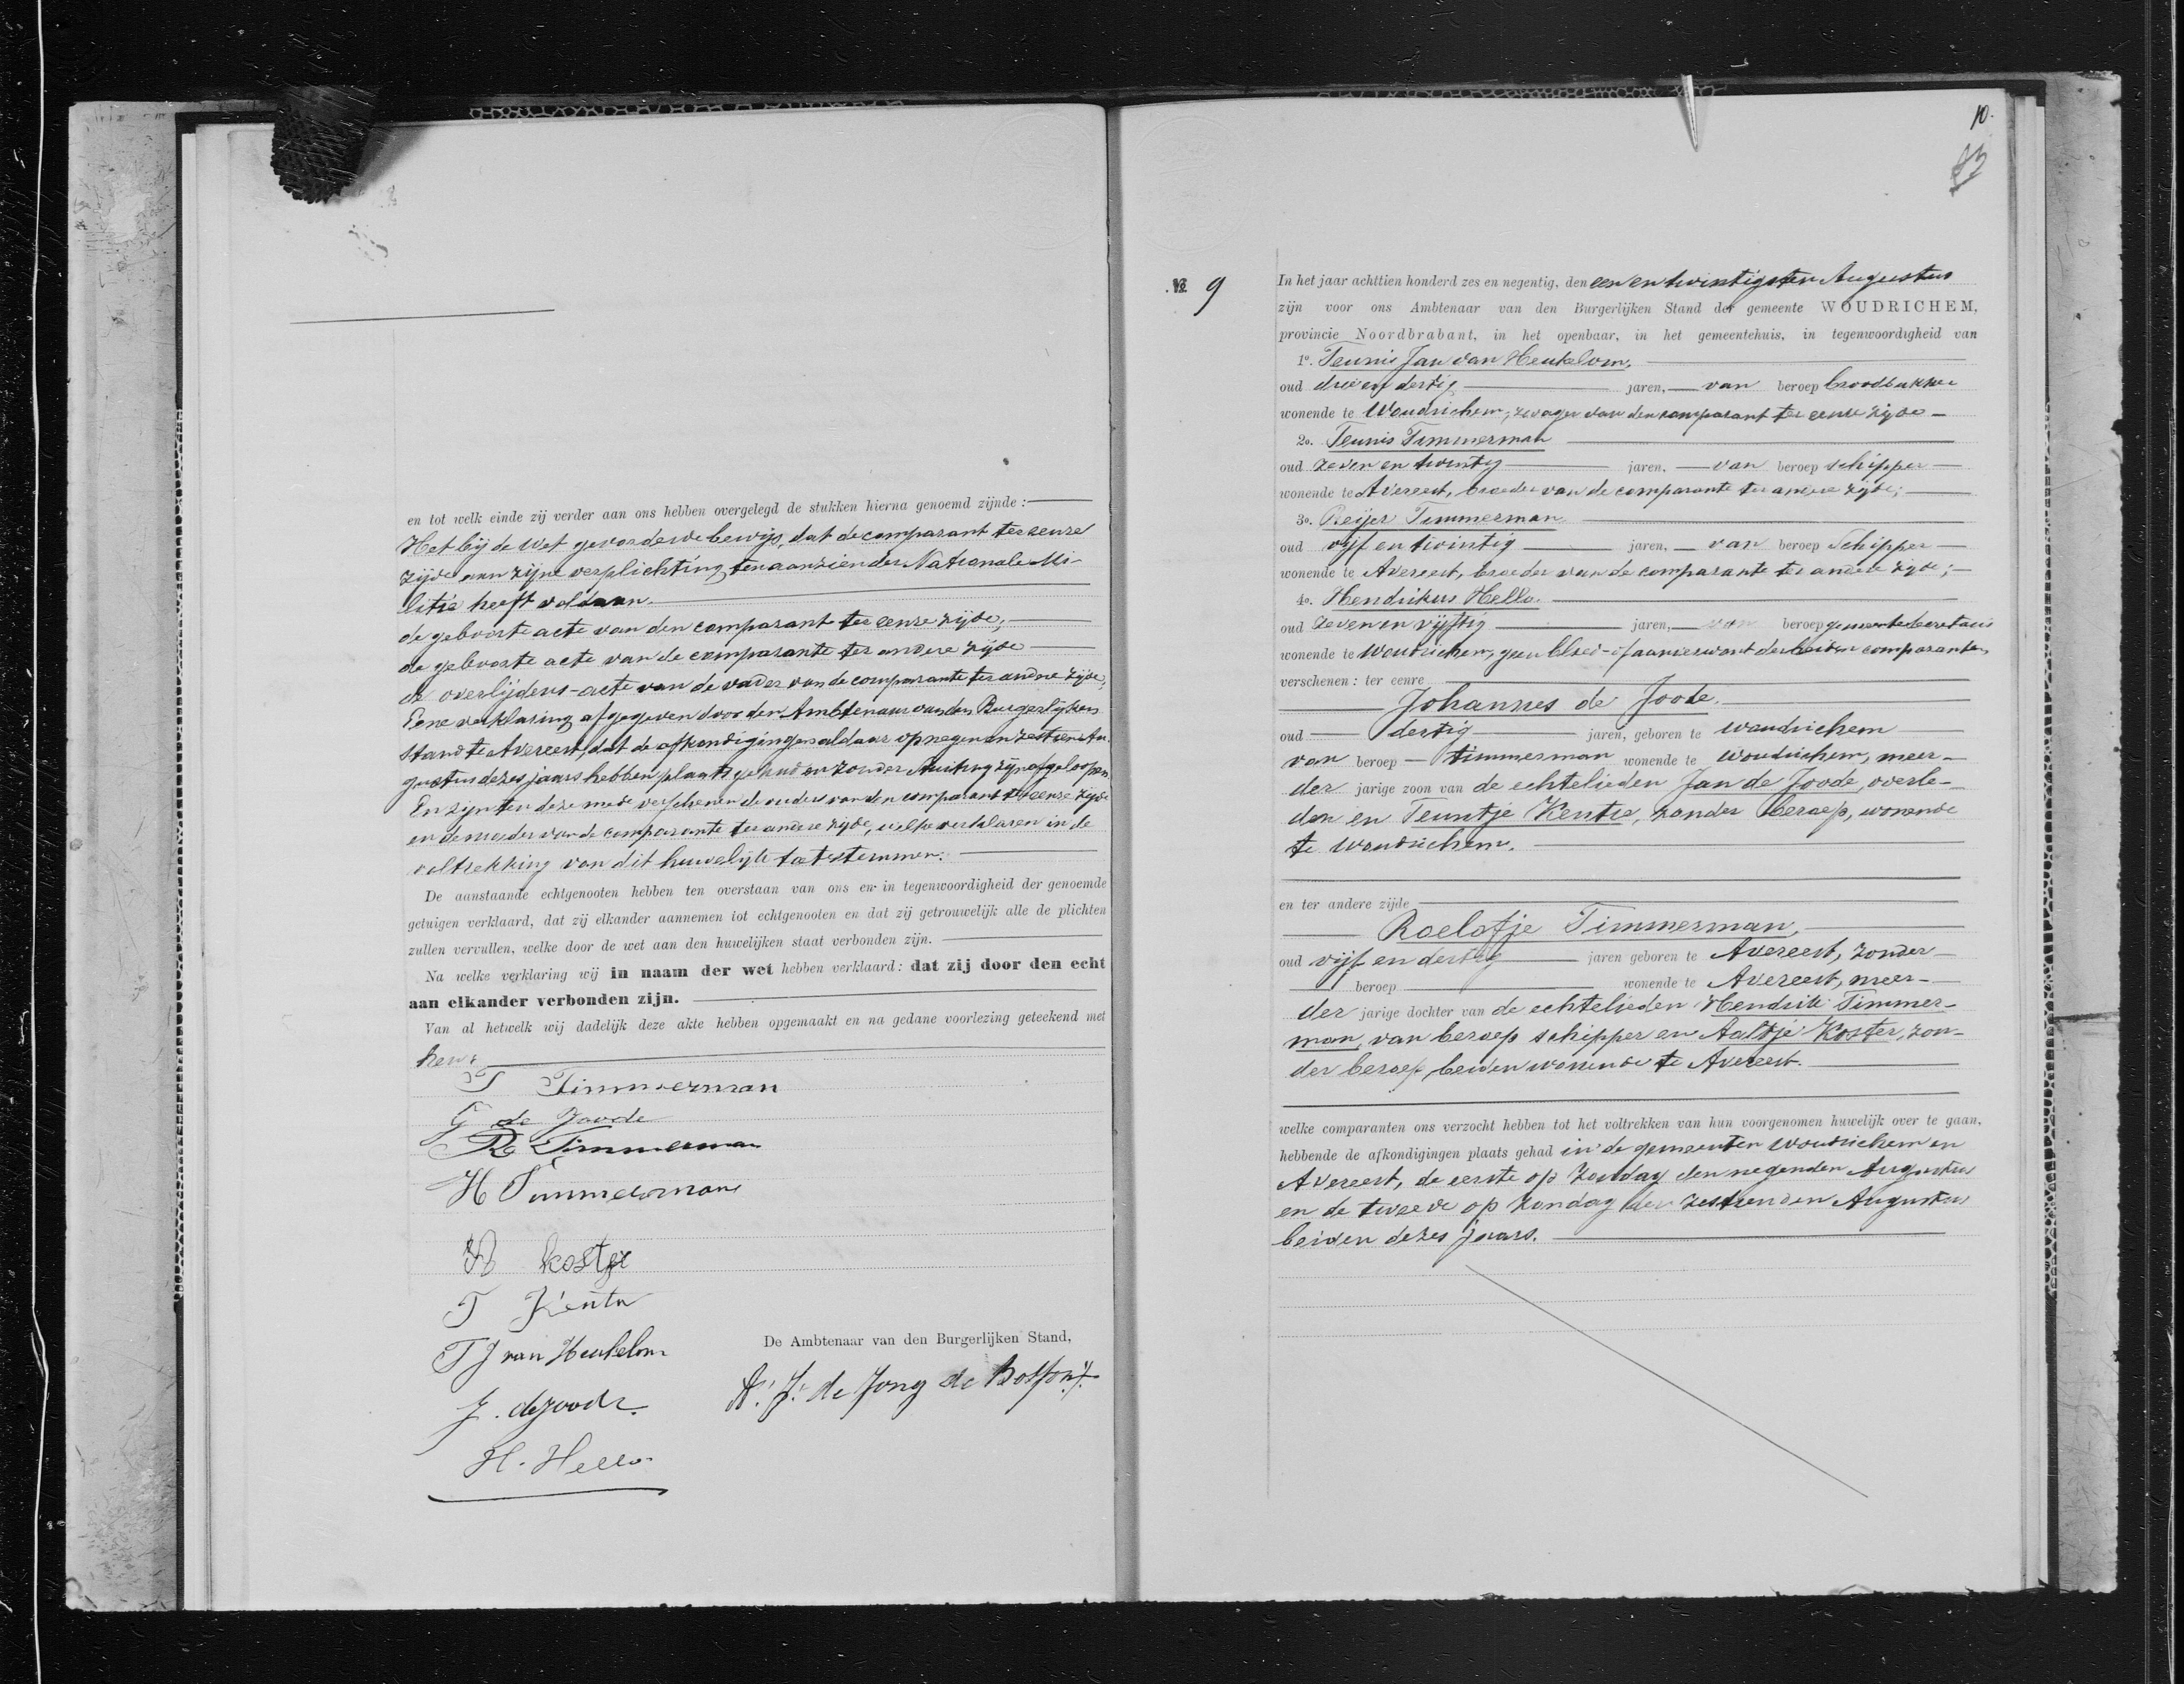 en tot welk einde zij verder aan ons hebben overgelegd de stukken hierna genoemd zijnde:
Het bij de Wet gevorderde bewijs, dat de comparant ter eenre
zijde aan zijne verplichting ten aanzien der Nationale Mi-
litie heeft voldaan.
de geboorte acte van den comparant ter eenre zijde;
de geboorte acte van de comparante ter andere zijde
de overlijdens-acte van de vader van de comparante ter andere zijde,
Eene verklaring afgegeven door den Ambtenaar van den Burgerlijken
Stand te Avereest, dat de afkondigingen aldaar op negen en zestien Au-
gustus dezes jaars hebben plaats gehad en zonder stuiting zijn afgeloopen.
En zijn ten deze mede verschenen de ouders van den comparant ter eenre zijde
en de moeder van de comparante ter andere zijde, welke verklaren in de
voltrekking van dit huwelijk toetestemmen.
De aanstaande echtgenooten hebben ten overstaan van ons en in tegenwoordigheid der genoemde
getuigen verklaard, dat zij elkander aannemen tot echtgenooten en dat zij getrouwelijk alle de plichten
zullen vervullen, welke door de wet aan den huwelijken staat verbonden zijn.
Na welke verklaring wij in naam der wet hebben verklaard: dat zij door den echt
aan elkander verbonden zijn.
Van al hetwelk wij dadelijk deze akte hebben opgemaakt en na gedane voorlezing geteekend met
hen:
T Timmerman
G de Joode
R Timmerman
H Timmerman
A koster
T Kentu
T J van Heukelom
J. de Joode.
H. Hello
De Ambtenaar van den Burgerlijken Stand,
de Jong de
10.
№ 9
In het jaar achttien honderd zes en negentig, den een en twintigsten Augustus
zijn voor ons Ambtenaar van den Burgerlijken Stand der gemeente WOUDRICHEM,
provincie Noordbrabant, in het openbaar, in het gemeentehuis, in tegenwoordigheid van
1o. Teunis Jan van Heukelom,
oud drie en dertig jaren, van beroep broodbakker
wonende te Woudrichem, zwager van den comparant ter eenre zijde
2o. Teunis Timmerman
oud zeven en twintig jaren, van beroep schipper
wonende te Avereest, broeder van de comparante ter andere zijde;
3o. Reijer Timmerman
oud vijf en twintig jaren, van beroep Schipper
wonende te Avereest, broeder van de comparante ter andere zijde;
4o. Hendrikus Hello.
oud zeven en vijftig jaren, van beroep gemeentesecretaris
wonende te Woudrichem, geen bloed- of aanverwant der beiden comparanten,
verschenen: ter eenre
Johannes de Joode.
oud dertig jaren, geboren te Woudrichem
van beroep timmerman wonende te Woudrichem, meer-
der jarige zoon van de echtelieden Jan de Joode, overle-
den en Teuntje Kentie, zonder beroep, wonende
te Woudrichem.
en ter andere zijde
Roelofje Timmerman,
oud vijf en dertig jaren geboren te Avereest, zonder
beroep wonende te Avereest, meer-
der jarige dochter van de echtelieden Hendrik Timmer-
man, van beroep schipper en Aaltje Koster, zon-
der beroep, beiden wonende te Avereest.
welke comparanten ons verzocht hebben tot het voltrekken van hun voorgenomen huwelijk over te gaan,
hebbende de afkondigingen plaats gehad in de gemeenten Woudrichem en
Avereest, de eerste op Zondag den negenden Augustus
en de tweede op Zondag den zestienden Augustus
beiden dezes jaars.